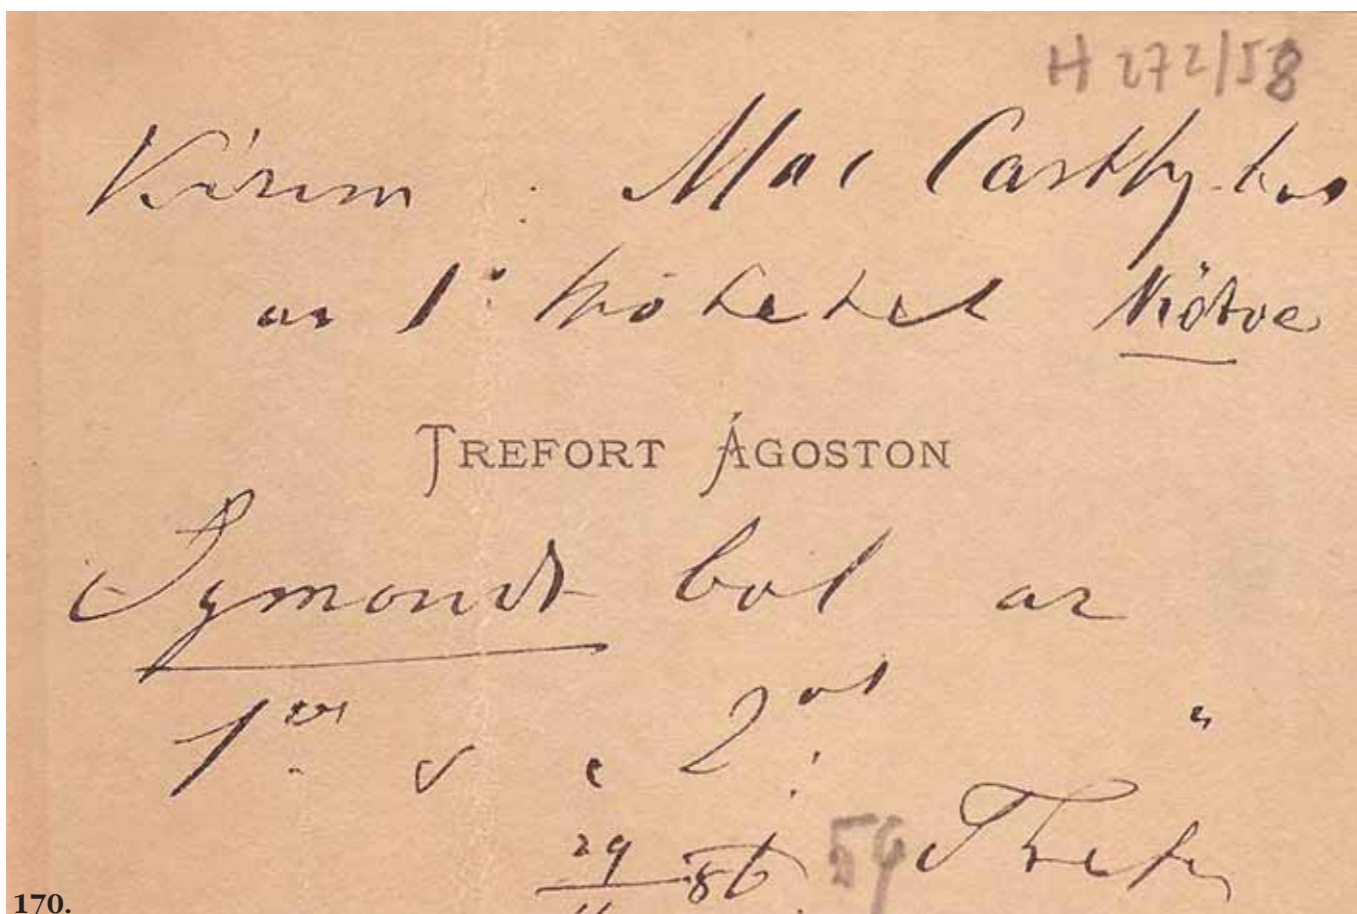 H 272/58
Kérem Mac Carthy-
az 1ső kötetet kötve
TREFORT ÁGOSTON
Symonds ból az
1ső s a 2ot "
29 86 59 Trefort
170.